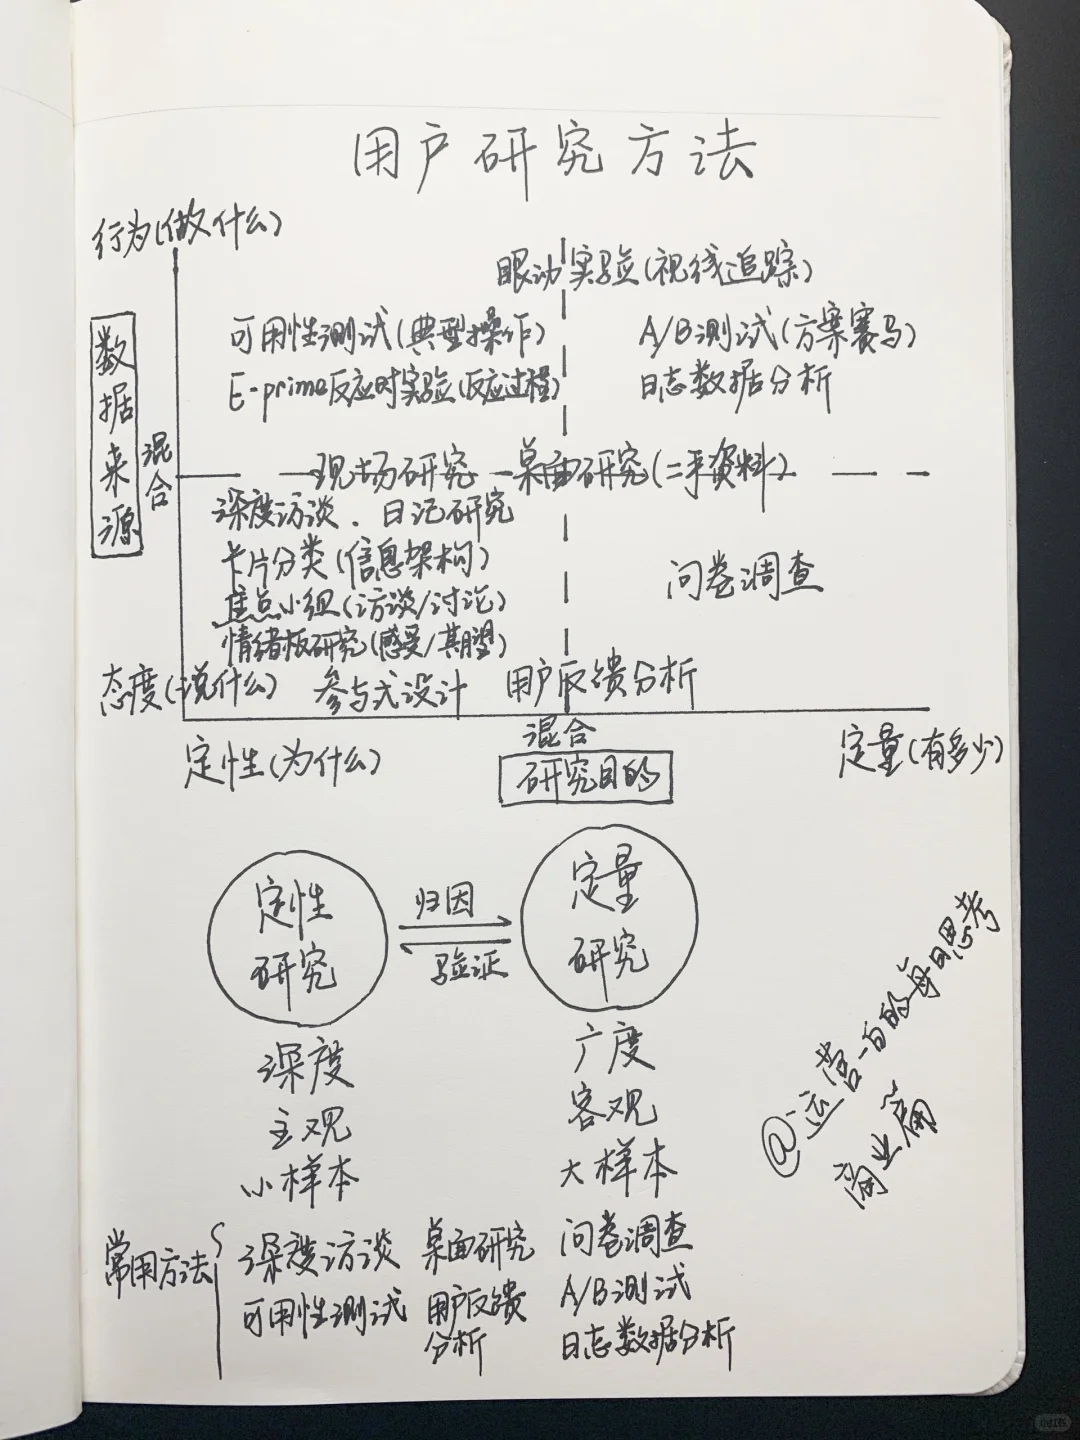 用户研究方法
行为(做什么)
眼动实验(视线追踪)
可用性测试(典型操作)
A/B测试(方案赛马)
E-prime反应时实验(反应过程)
日志数据分析
数据来源
混合
现场研究
桌面研究(二手资料)
深度访谈、日记研究
卡片分类(信息架构)
问卷调查
焦点小组(访谈/讨论)
情绪板研究(感受/期望)
态度(说什么)
参与式设计
用户反馈分析
混合
定性(为什么)
研究目的
定量(有多少)
定性
研究
归因
验证
定量
研究
深度
主观
小样本
广度
客观
大样本
常用方法
深度访谈
可用性测试
桌面研究
用户反馈
分析
问卷调查
A/B测试
日志数据分析
@运营一白的每日思考
商业篇
小红书